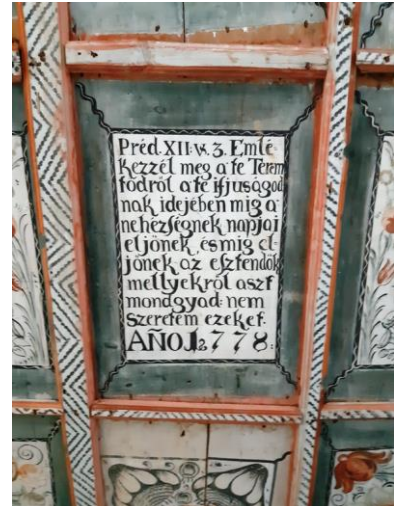 Préd. XII. v. 3. Emlé-
kezzél meg a te Terem
tödröl a te ifjuságod
nak idejében mig a
nehézségnek napjai
el jönek, és mig el-
jönek az esztendök
mellyekröl aszt
mondgyad: nem
szeretem ezeket.
AÑO. 1778.